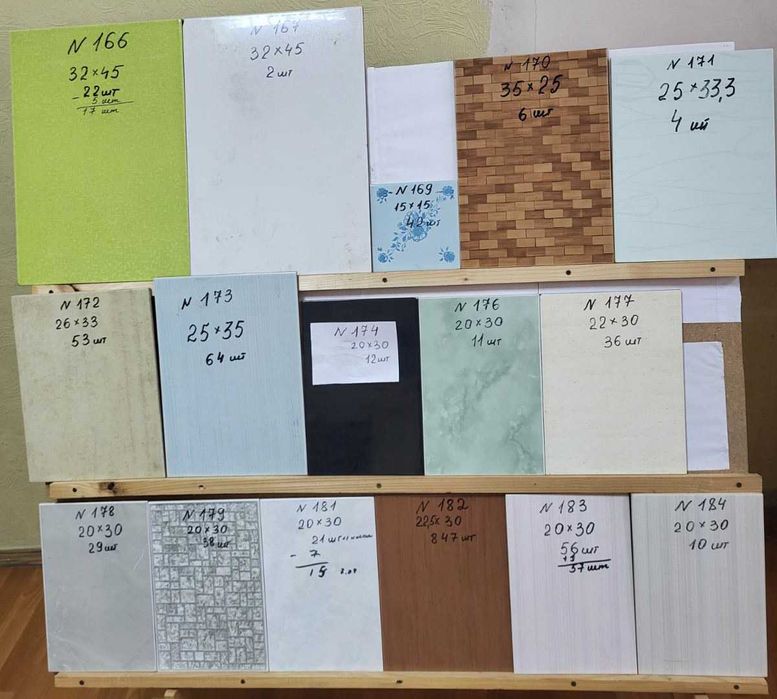 N 166
32×45
- 22 шт
5 шт
17 шт
N 167
32×45
2 шт
N 169
15×15
42 шт
N 170
35×25
6 шт
N 171
25×33,3
4 шт
N 172
26×33
53 шт
N 173
25×35
64 шт
N 174
20×30
12 шт
N 176
20×30
11 шт
N 177
22×30
36 шт
N 178
20×30
29 шт
N 179
20×30
38 шт
N 181
20×30
21 шт
- 7
15
N 182
22,5×30
847 шт
N 183
20×30
56 шт
+1
57 шт
N 184
20×30
10 шт